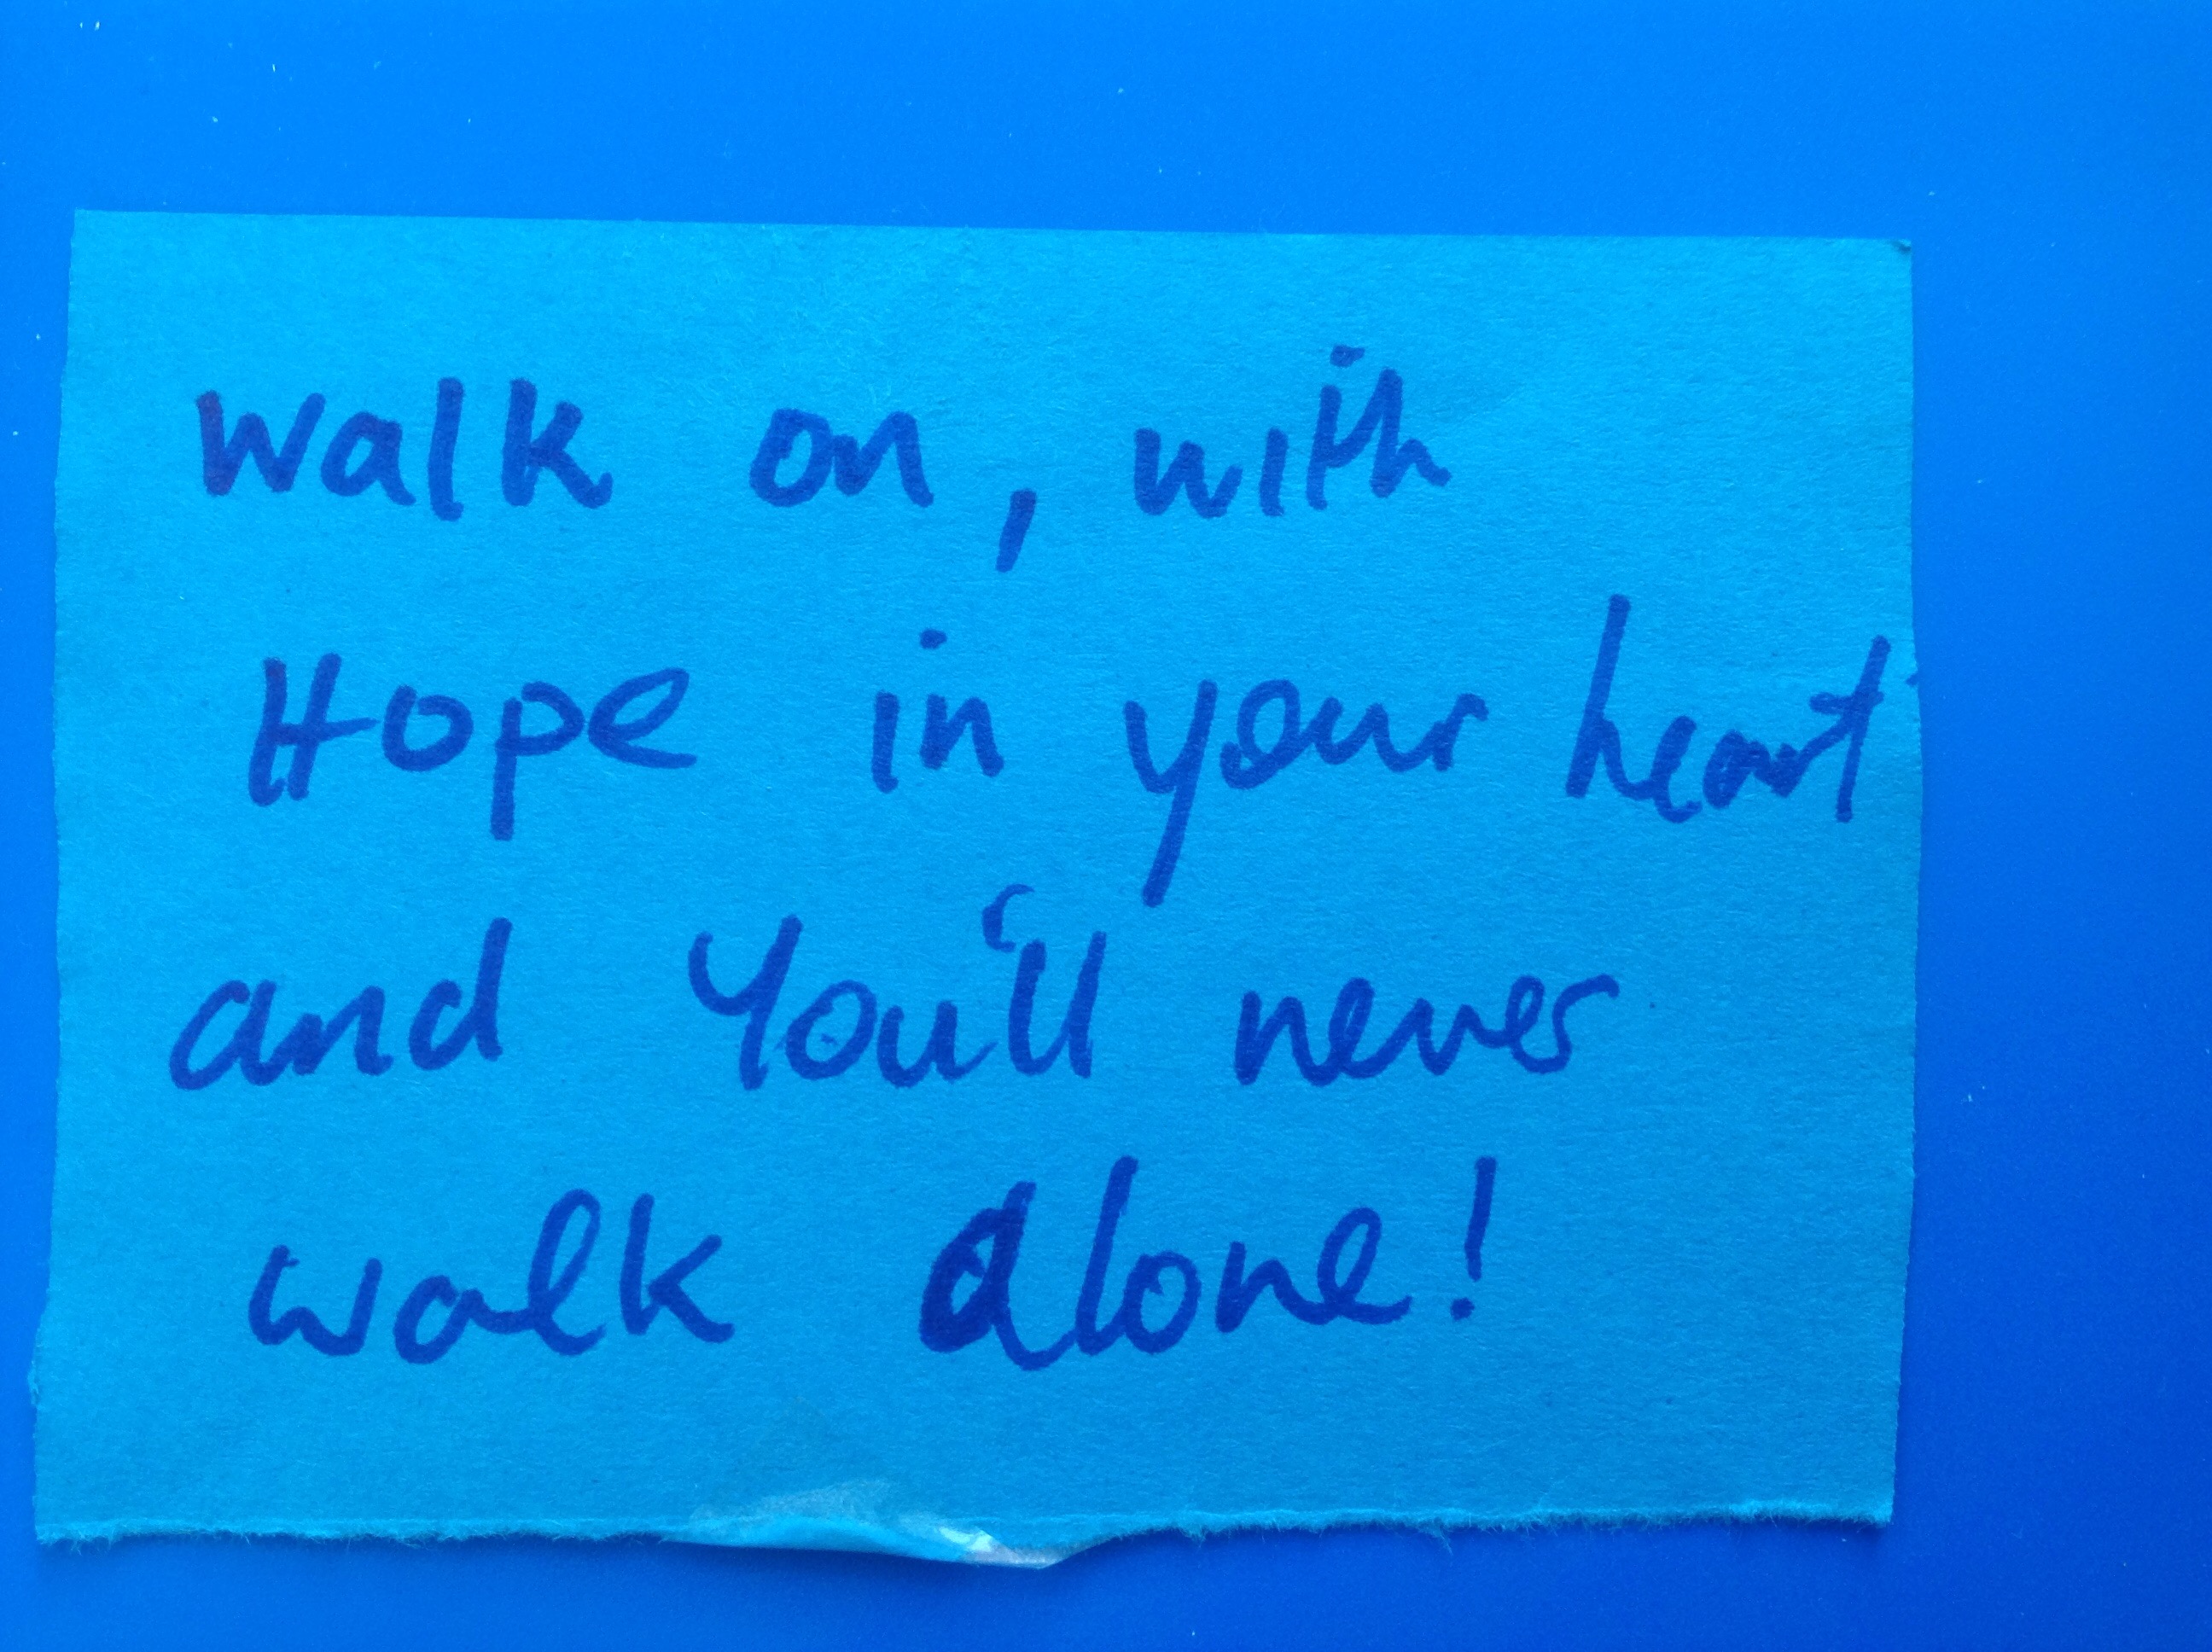 walk on, with
Hope in your heart
and You'll never
walk alone!